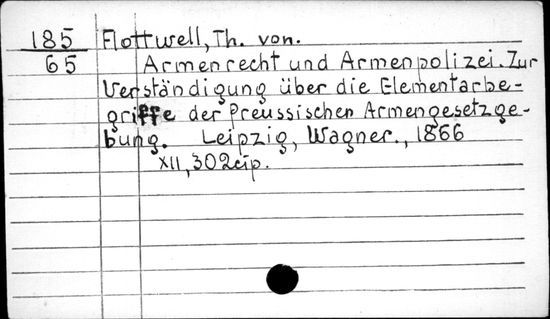 185 Flottwell, Th. von.
65 Armenrecht und Armenpolizei. Zur
Verständigung über die Elementarbe-
griffe der Preussischen Armengesetzge-
bung. Leipzig, Wagner., 1866
XII, 302